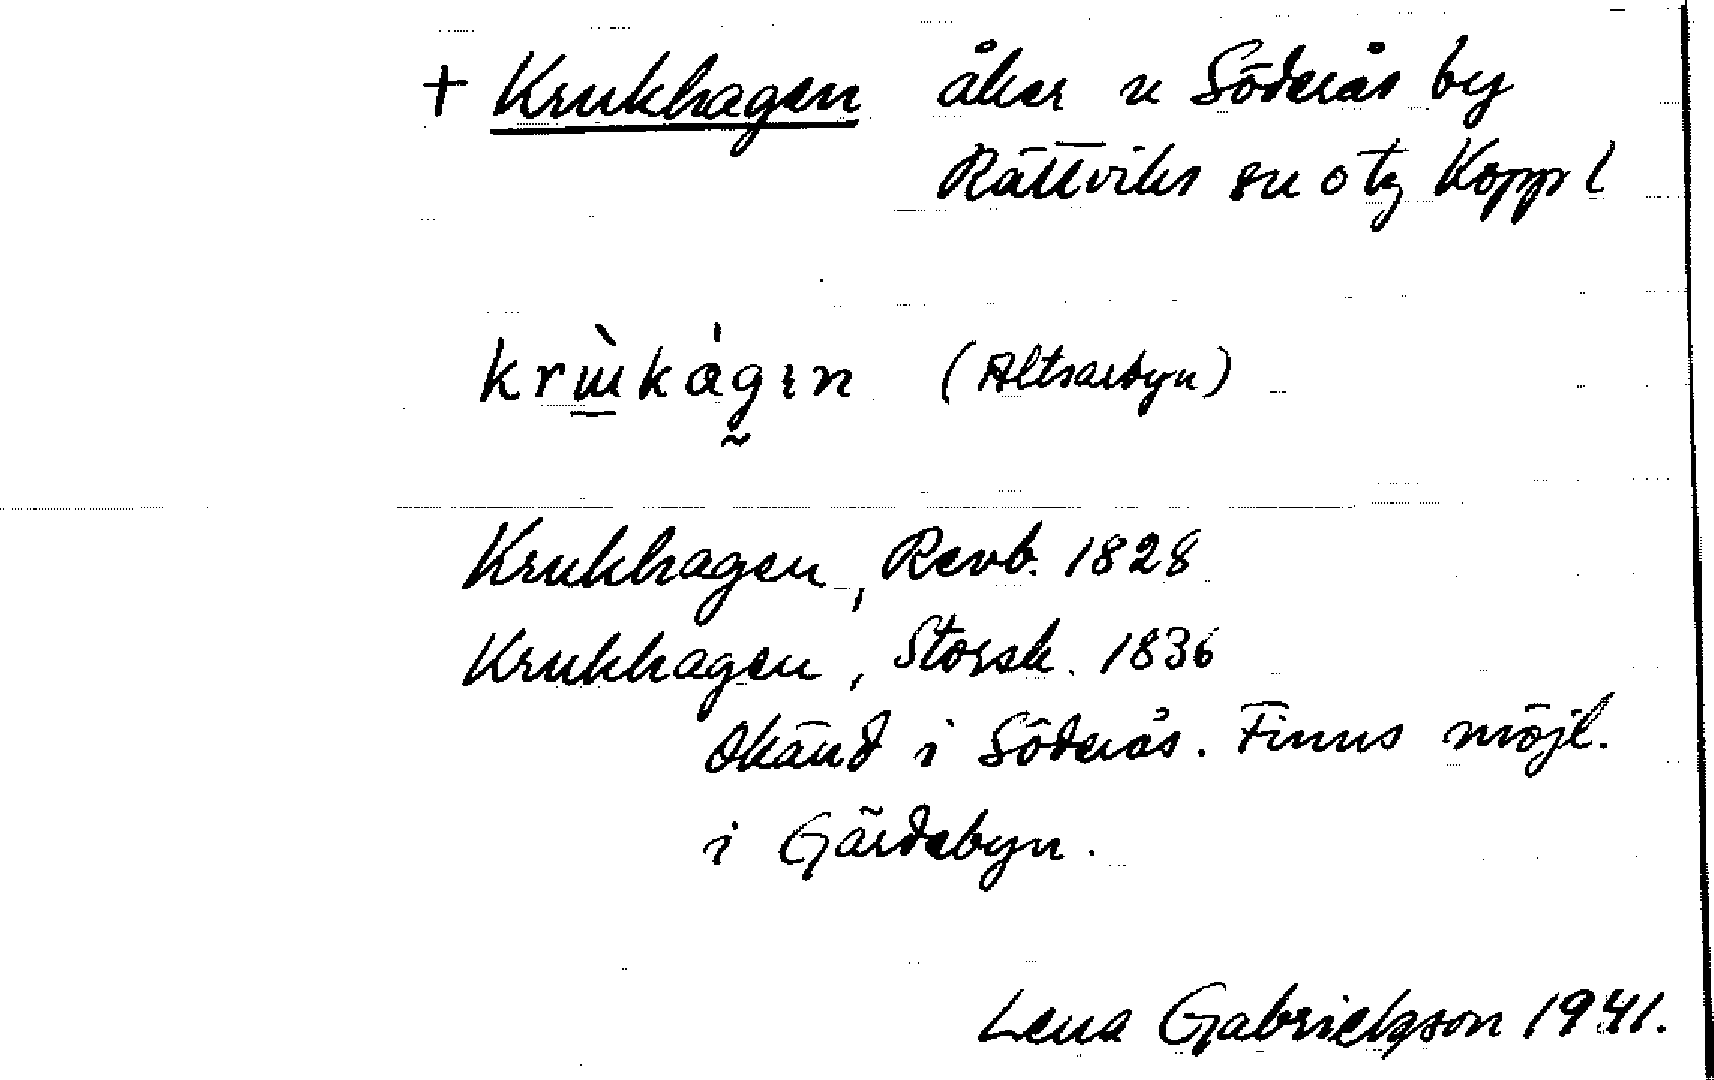 + Krukhagen åker u Söderås by
Rättviks sn o tg Kopp l
(Altsarbyn)
Krukhagen, Revb. 1828
Krukhagen, Storsk. 1836
Okänd i Söderås. Finns möjl.
i Gärdebyn.
Lena Gabrielsson 1941.